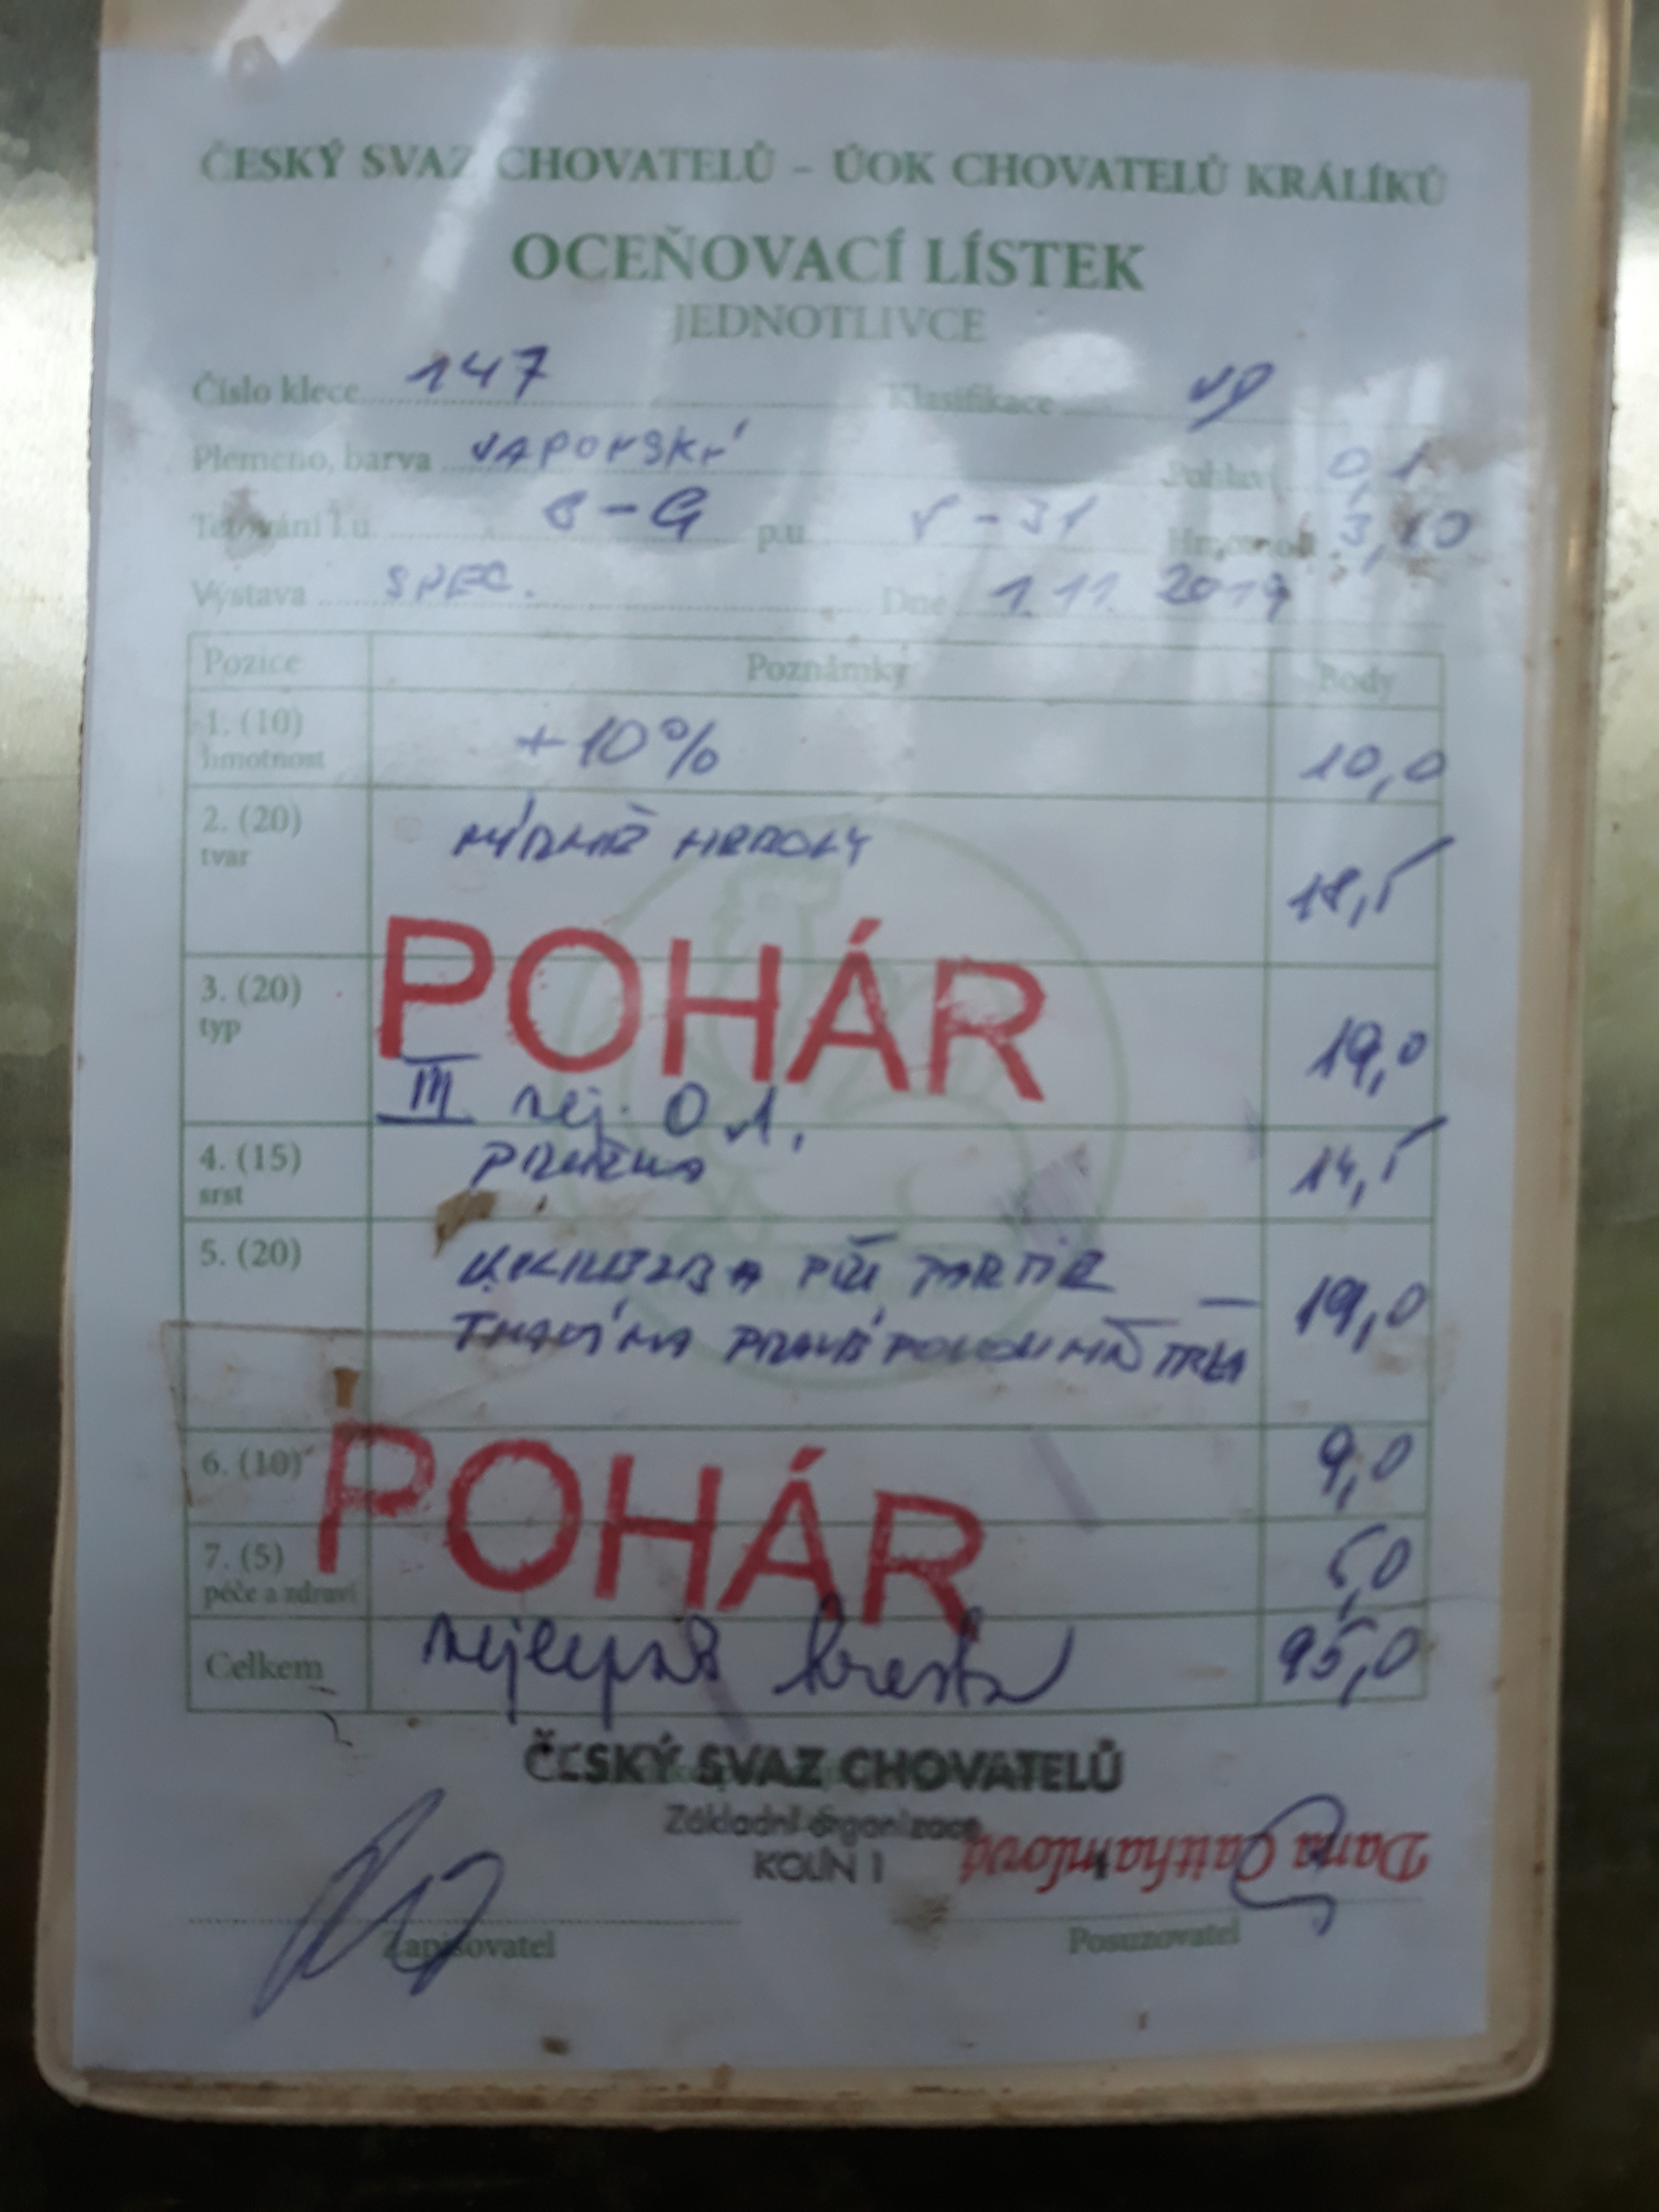 ČESKÝ SVAZ CHOVATELŮ – ÚOK CHOVATELŮ KRÁLÍKŮ
OCEŇOVACÍ LÍSTEK
JEDNOTLIVCE
Číslo klece 147 Klasifikace
Plemeno, barva JAPONSKÝ Pohlaví 0,1
Tetování l.u. 8-G p.u. Hmotnost 3,10
Výstava SPEC. Dne 1.11. 2019
Pozice Poznámky Body
1. (10) hmotnost +10% 10,0
2. (20) tvar MÍRNĚ HRBOLY 18,5
POHÁR
3. (20) typ 19,0
III nej. 0.1.
4. (15) srst 14,5
5. (20) 19,0
NA PRAVÉ POLOVINĚ TĚLA
6. (10) 9,0
POHÁR
7. (5) péče a zdraví 5,0
Celkem nejlepší kresba 95,0
ČESKÝ SVAZ CHOVATELŮ
Základní organizace
KOLÍN 1
Dana
Zapisovatel Posuzovatel